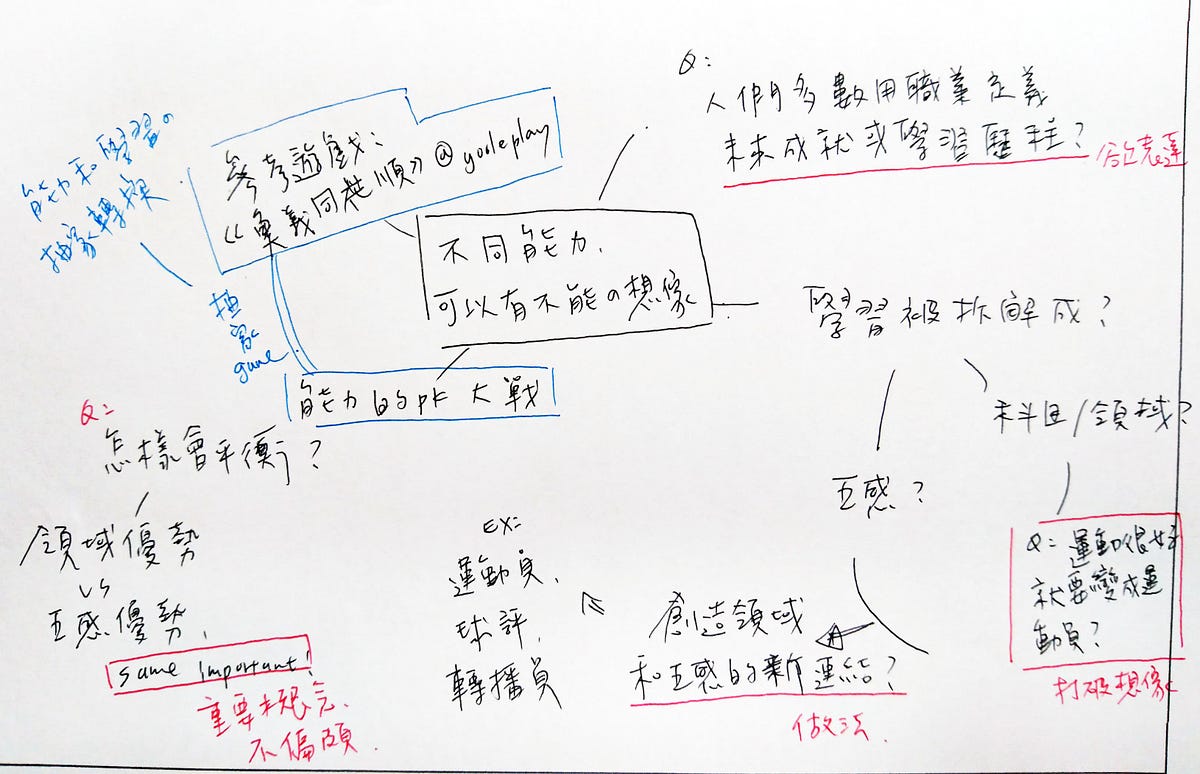 Q:
人們多數用職業定義
未來成就或學習歷程?
能力和學習の
抽象轉換
參考遊戲:
《象義同花順》@yooleplay
不同能力.
可以有不能の想像
抽象
game
能力的PK大戰
學習被拆解成?
科目/領域?
五感?
Q: 運動很好
就要變成運
動員?
打破想像
Q:
怎樣會平衡?
領域優勢
vs
五感優勢.
same important!
重要概念.
不偏頗.
EX:
運動員.
球評.
轉播員
創造領域
和五感的新連結?
做法.